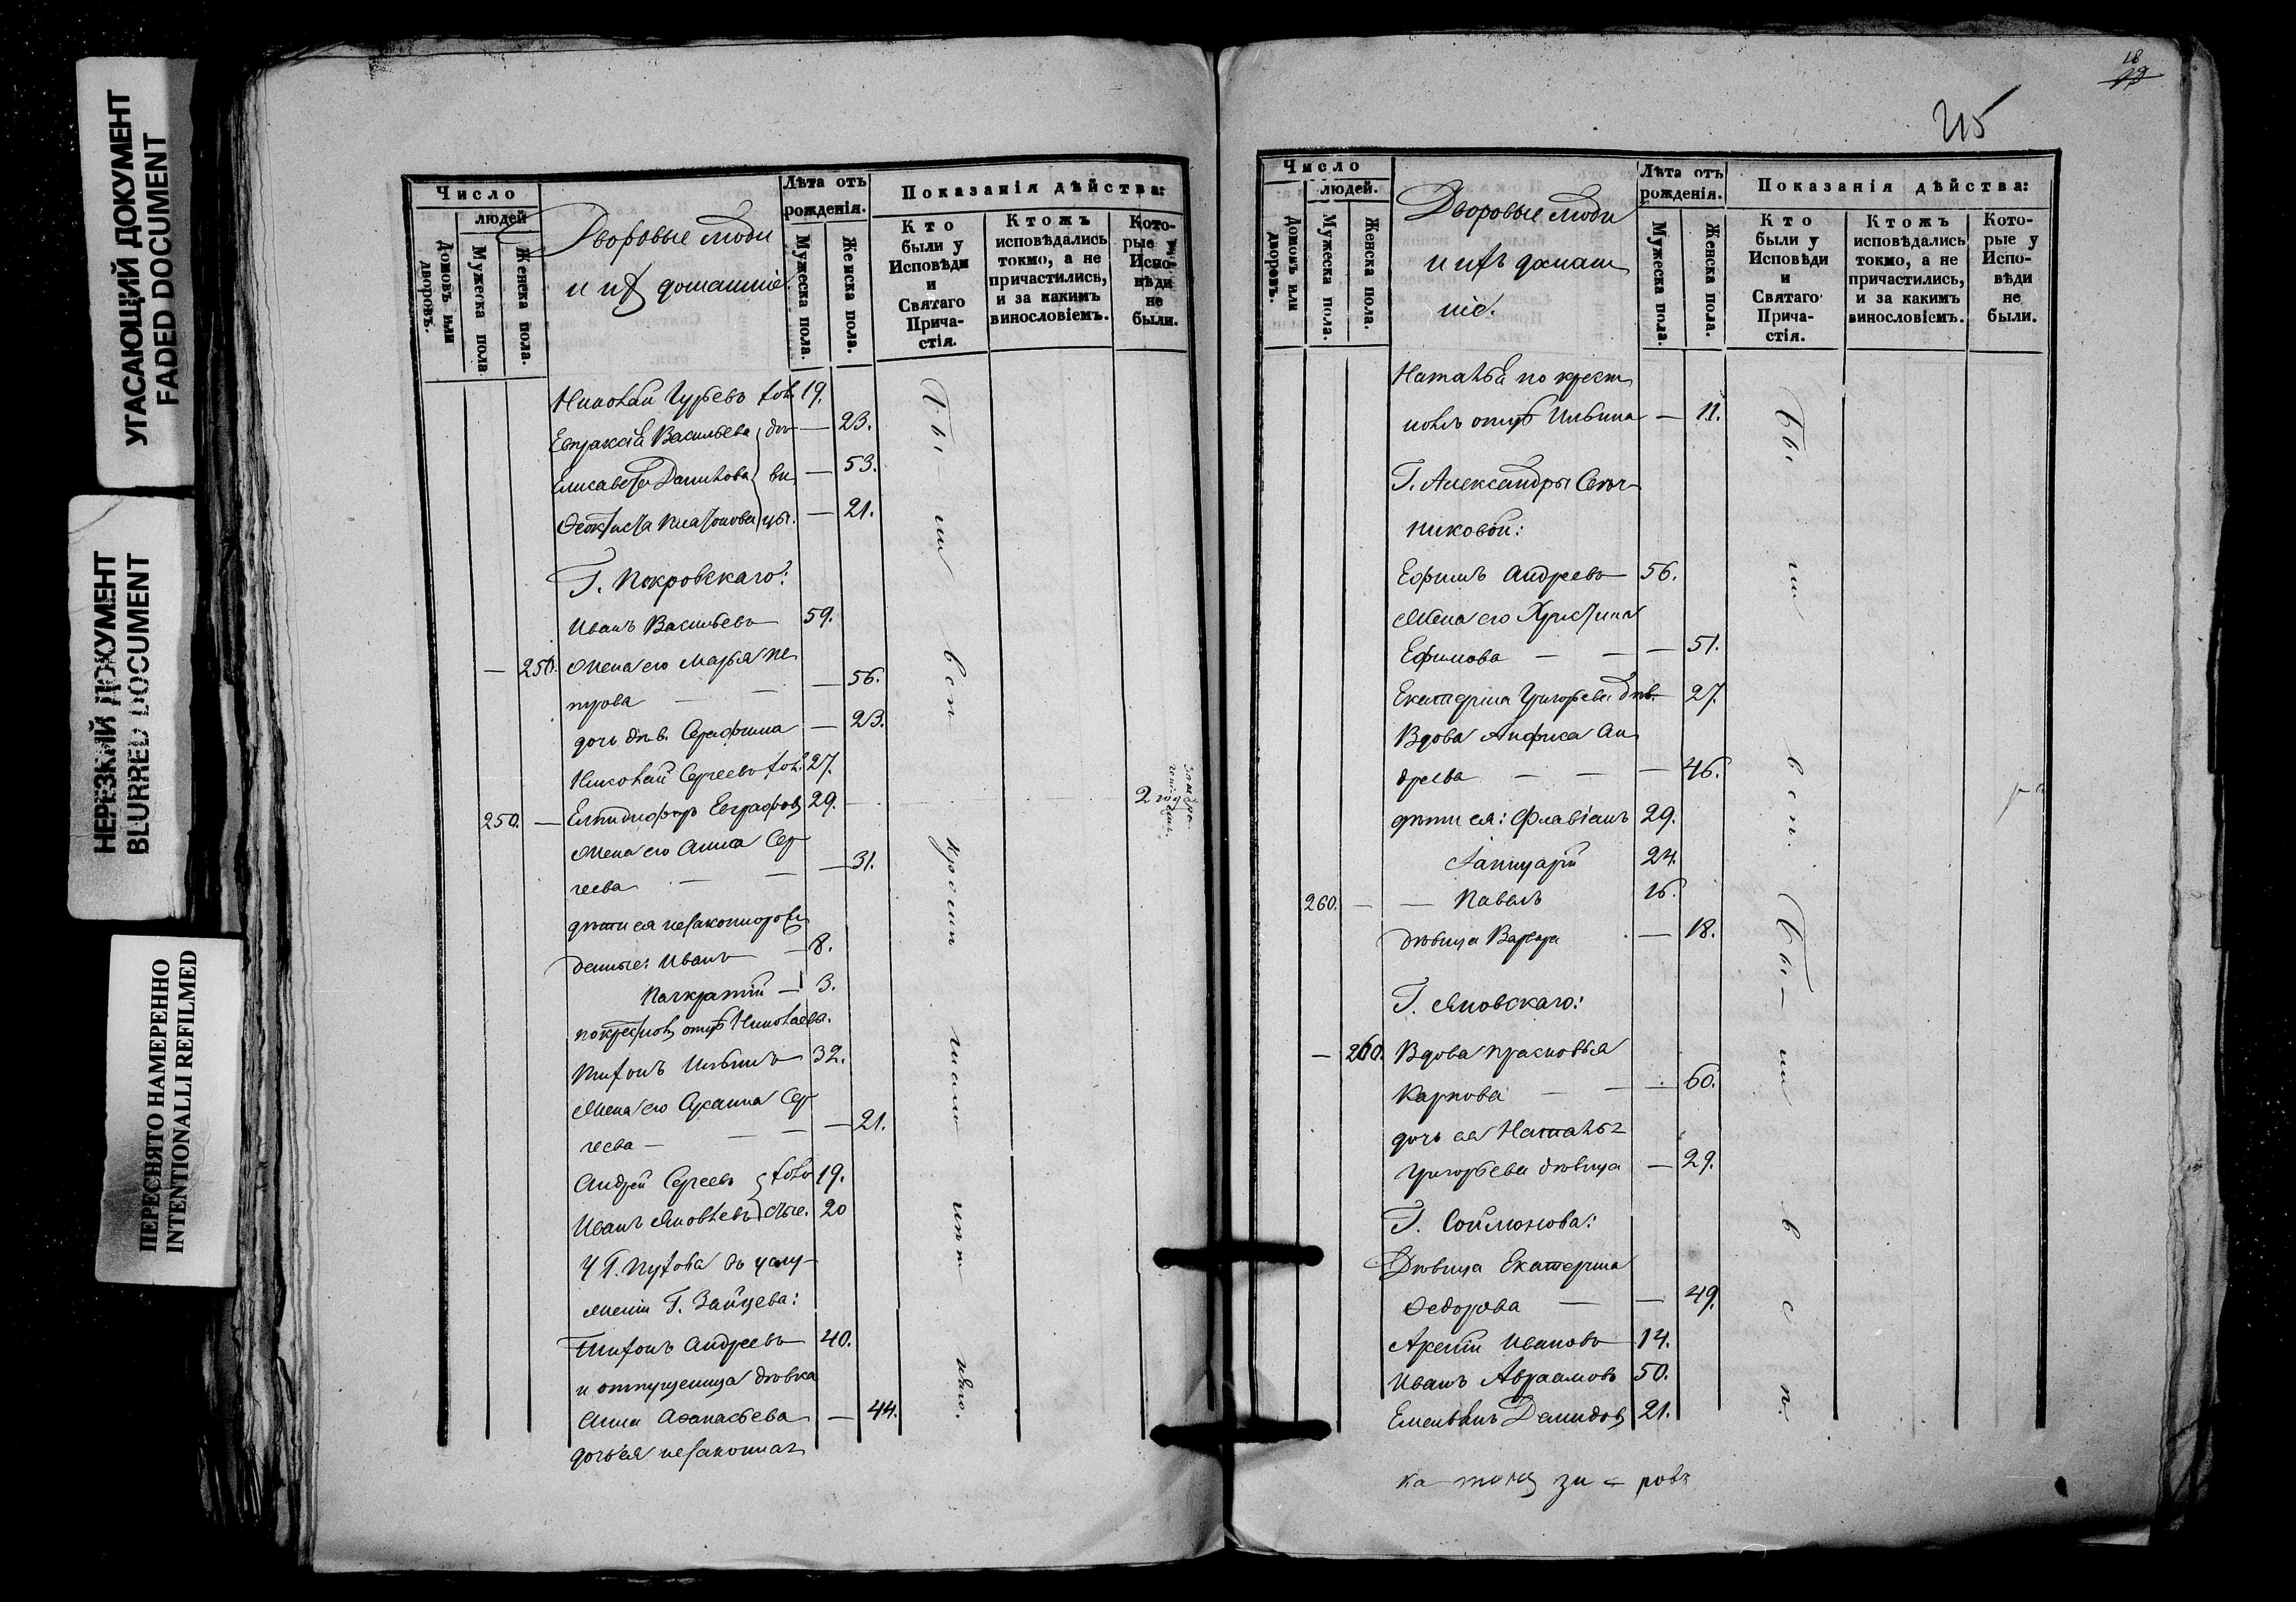 УГАСАЮЩИЙ ДОКУМЕНТ
FADED DOCUMENT
НЕРЕЗКИЙ ДОКУМЕНТ
BLURRED DOCUMENT
ПЕРЕСНЯТО НАМЕРЕННО
INTENTIONALLI REFILMED
Число
людей
Домовъ или дворовъ.
Мужеска пола
Женска пола.
Дворовые люди
и ихъ домашніе.
Лѣта отъ рожденія.
Мужеска пола.
Женска пола.
Показанія дѣйства:
Кто были у Исповѣди и Святаго Причастія.
Ктожъ исповѣдались токмо, а не причастились, и за какимъ винословіемъ.
Которые у Исповѣди не были.
Николай Гурьевъ хол. 19.
Евпраксія Васильева — 23.
Елисавета Данилова — 53.
Ѳеоктиста Платонова — 21.
дѣвицы.
Г. Покровскаго:
Иванъ Васильевъ 59.
— 250. Жена его Марья Пе
трова — — — 56.
дочь дѣв. Серафима — 23.
Николай Сергеевъ хол. 27.
250. — Елпидифоръ Евграфовъ 29. — 2
Жена его Анна Сер
геева — — — 31.
дѣти ея незаконнорож
денные: Иванъ — 8.
Панкратій — 3.
по крестномъ отцѣ Николаевы.
Тихонъ Ильинъ 32.
Жена его Сусанна Сер
геева — — — — 21.
Андрей Сергеевъ 19.
Иванъ Яковлевъ 20
холостые.
У Г. Пухова въ услу-
женіи Г. Зайцева:
Тихонъ Андреевъ 40.
и отпущеница дѣвка
Анна Аѳанасьева — 44.
дочь ея незаконная
Были
всѣ
кромѣ
2
215
18
Число
людей.
Домовъ или дворовъ.
Мужеска пола.
Женска пола.
Дворовые люди
и ихъ домаш
ніе.
Лѣта отъ рожденія.
Мужеска пола.
Женска пола.
Показанія дѣйства:
Кто были у Исповѣди и Святаго Причастія.
Ктожъ исповѣдались токмо, а не причастились, и за какимъ винословіемъ.
Которые у Исповѣди не были.
Наталья по крест
номъ отцѣ Ильина — 11.
Г. Александры Свѣч-
никовой:
Ефимъ Андреевъ 56.
Жена его Христина
Ефимова — — — 51.
Екатерина Григорьева дѣв. 27.
Вдова Анфиса Ан
дреева — — — 46.
дѣти ея: Флавіанъ 29.
Іаннуарій 24.
260. — — Павелъ 16.
дѣвица Варвара — 18.
Г. Яновскаго:
— 260. Вдова Прасковья
Карпова — — — 60.
дочь ея Наталья
Григорьева дѣвица — 29.
Г. Соймонова:
Дѣвица Екатерина
Ѳедорова — — 49.
Арсеній Ивановъ 14.
Иванъ Авраамовъ 50.
Емельянъ Демидовъ 21.
Были